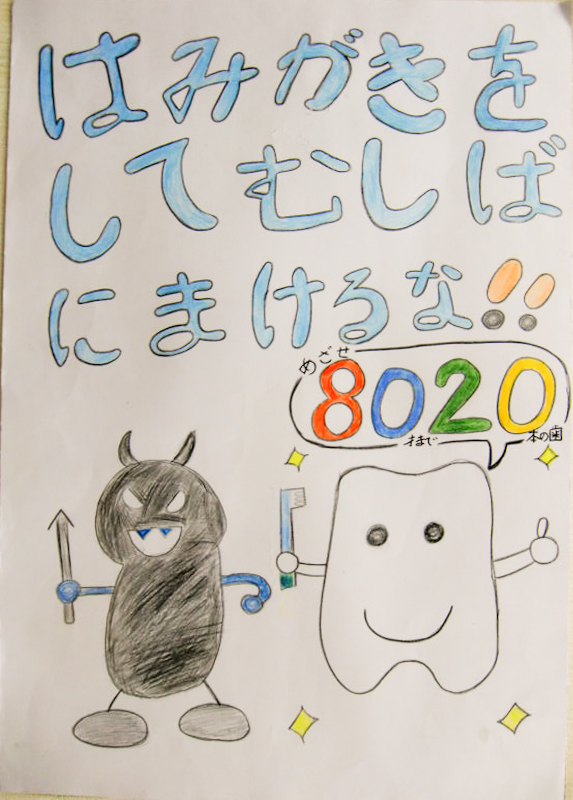 はみがきを
してむしば
にまけるな!!
めざせ
8020
才まで 本の歯